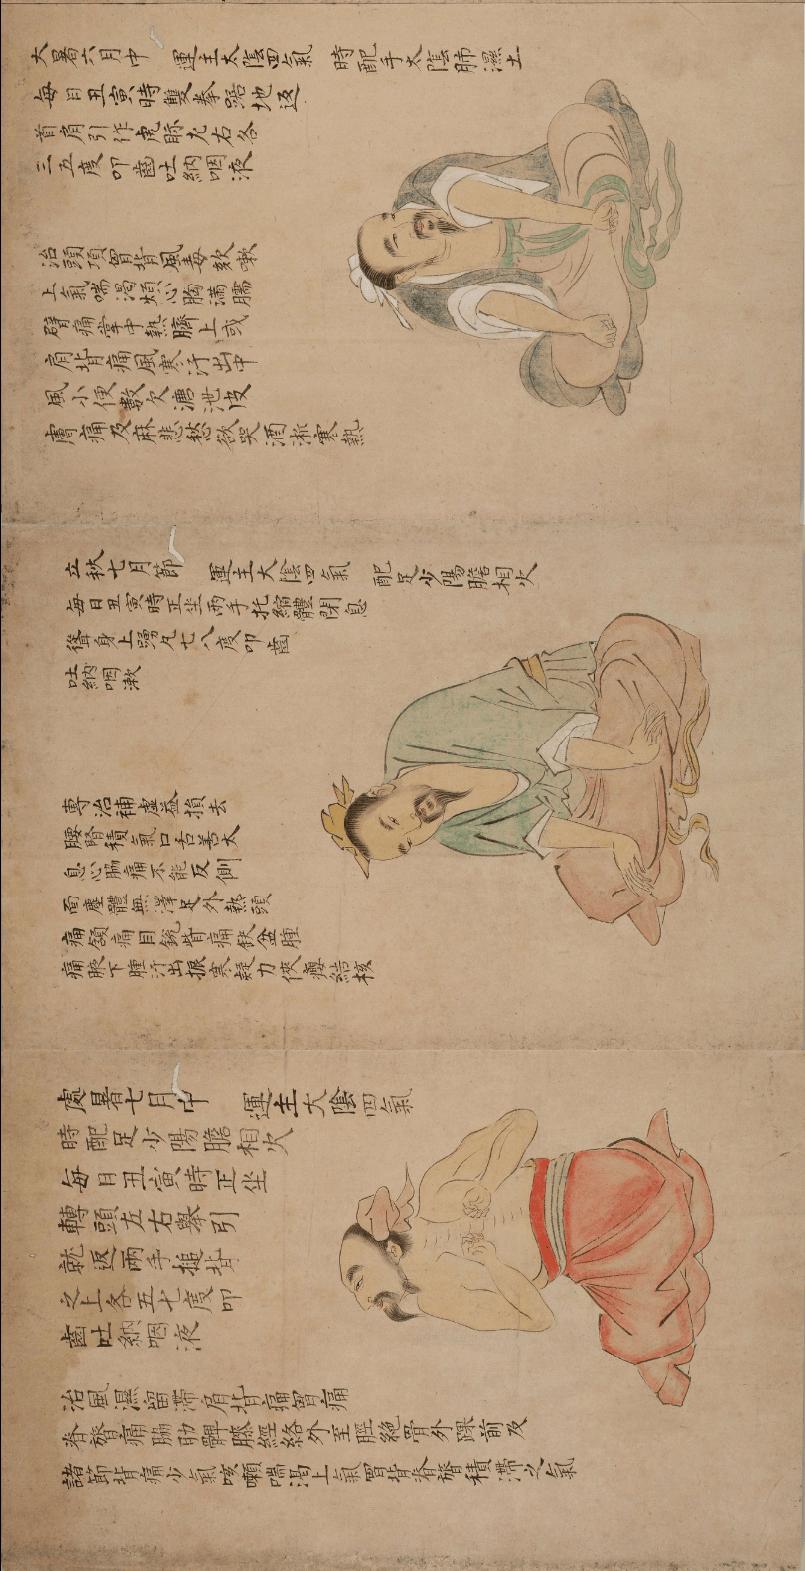 大暑六月中 運主太陰四氣 時配手太陰肺濕土
每日丑寅時雙拳踞地返
首肩引作虎眎左右各
三五度叩齒吐納咽液
治頭項胷背風毒欬嗽
上氣喘渴煩心胸滿臑
臂痛掌中熱臍上或
肩背痛風寒汗出中
風小便數欠溏泄皮
膚痛及麻悲愁欲哭洒淅寒熱
立秋七月節 運主太陰四氣 配足少陽膽相火
每日丑寅時正坐兩手托縮體閉息
聳身上踴凡七八度叩齒
吐納咽漱
專治補虛益損去
腰腎積氣口苦善太
息心脇痛不能反側
面塵體無澤足外熱頭
痛頷痛目銳眥痛缺盆腫
痛腋下腫汗出振寒疑力俠癭結核
處暑七月中 運主太陰四氣
時配足少陽膽相火
每日丑寅時正坐
轉頭左右舉引
就返兩手搥背
之上各五七度叩
齒吐納咽液
治風濕留滯肩背痛胷痛
脊膂痛脇肋髀膝經絡外至脛絕骨外踝前及
諸節皆痛少氣咳嗽喘渴上氣胷背脊膂積滯之氣